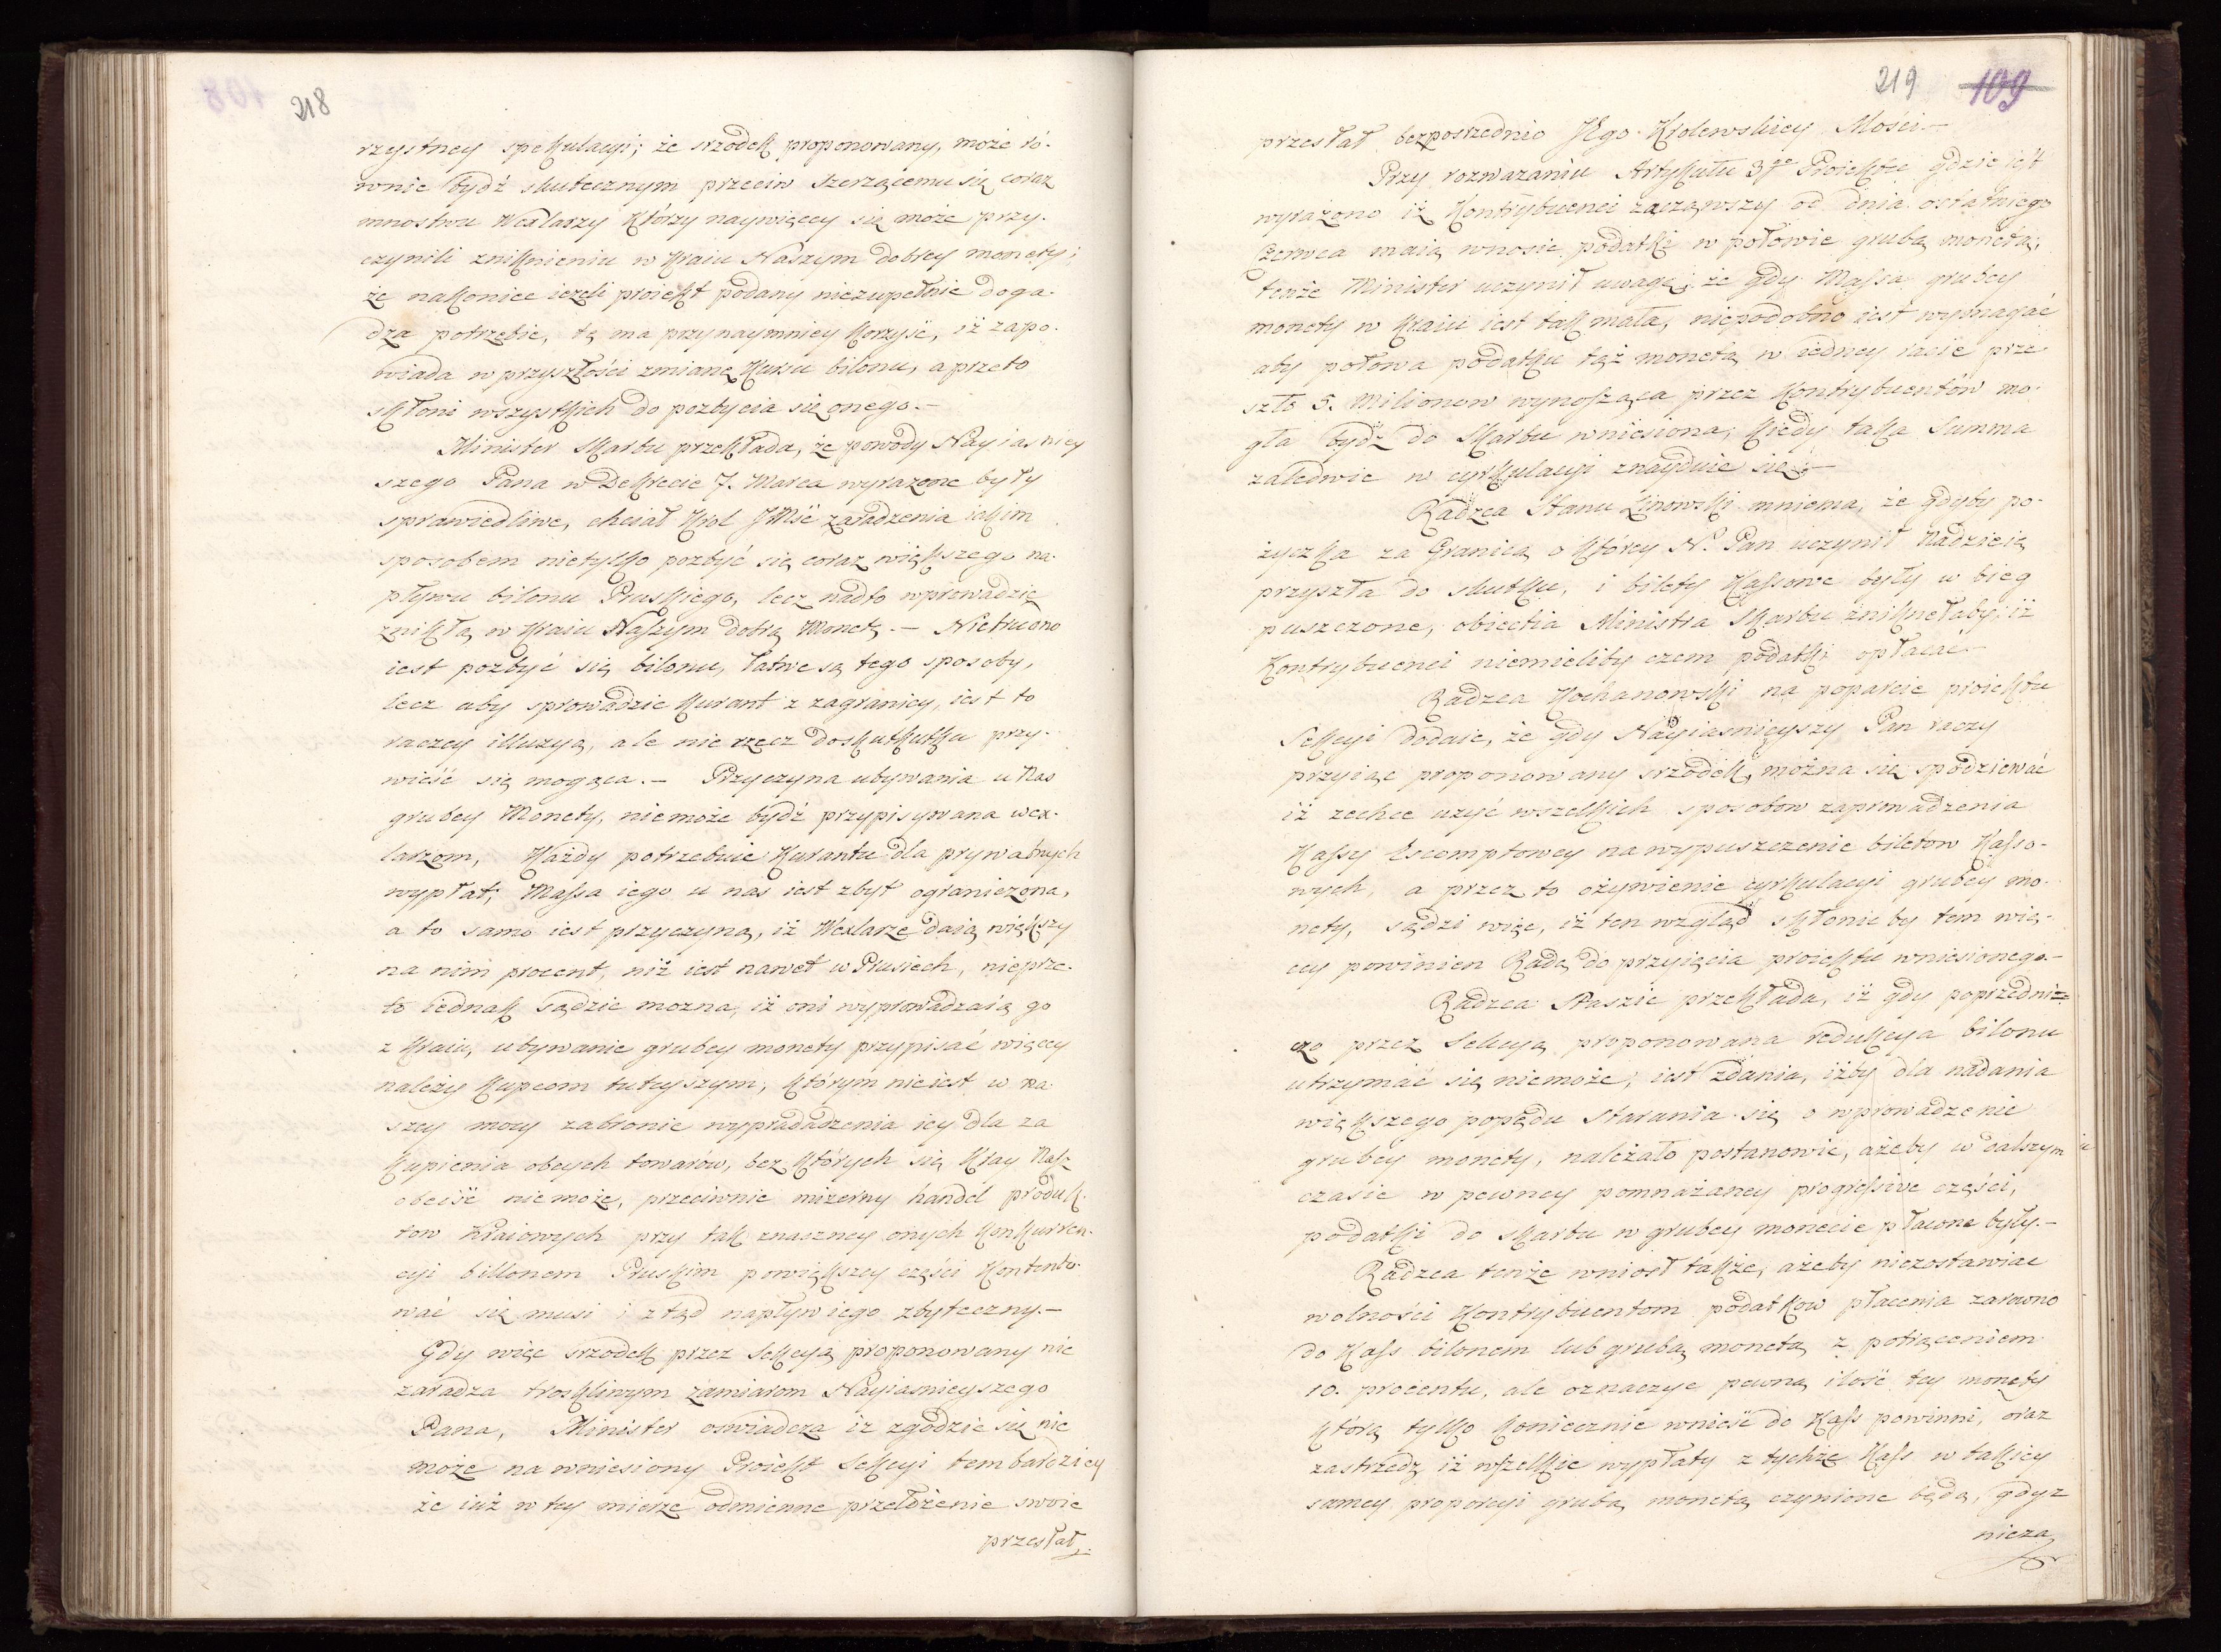 218
rzystney spekulacyi; że srzodek proponowany, może ró-
wnie bydź skutecznym przeciw szerzącemu się coraz
mnostwu Wexlarzy którzy naywięcey się może przy-
czynili zniknieniu w kraiu Naszym dobrey monety;
że nakoniec ieżeli proiekt podany niezupełnie doga-
dza potrzebie, tę ma przynaymniey korzyść, iż zapo-
wiada w przyszłości zmianę kursu bilonu, a przeto
skłoni wszystkich do pozbycia się onego.—
Minister Skarbu przekłada, że powody Nayiasniey
szego Pana w Dekrecie 7. Marca wyrazone były
sprawiedliwe, chciał Krol JMść zaradzenia iakim
sposobem nietylko pozbyć się coraz większego na-
pływu bilonu Pruskiego, lecz nadto wprowadzić
znikłą w kraiu Naszym dobrą Monetę.— Nietrudno
iest pozbyć się bilonu, łatwe są tego sposoby,
lecz aby sprowadzic kurant z zagranicy, iest to
raczey illuzyą, ale nie rzecz doskutkutku przy-
wieść się mogąca.— Przyczyna ubywania u Nas
grubey Monety, niemoże bydź przypisywana wex-
larzom, Każdy potrzebuie Kurantu dla prywatnych
wypłat; Massa iego u nas iest zbyt ograniczona,
a to samo iest przyczyną, iż Wexlarze daią większy
na nim procent, niż iest nawet w Prusiech, nieprze-
to iednak sądzic mozna, iż oni wyprowadzaią go
z kraiu, ubywanie grubey monety przypisać więcey
należy kupcom tuteyszym, którym nie iest w na-
szey mocy zabronic wypradadzenia iey dla za
kupienia obcych towarów, bez których się Kray Nasz
obeiść nie może, przeciwnie mizerny handel produk-
tow kraiowych przy tak znaczney onych konkurren-
cyi billonem Pruskim powiększey części kontento-
wać się musi i ztąd napływ iego zbyteczny.—
Gdy więc srzodek przez Sekcyą proponowany nie
zaradza troskliwym zamiarom Nayiasnieyszego
Pana, Minister oswiadcza iż zgodzic się nie
może na wniesiony Proiekt Sekcyi tembardziey
że iuż w tey mierze odmienne przełożenie swoie
przesłał.
219 109
przesłał bezposrzednio JEgo Krolewskiey Mości.—
Przy rozwazaniu Artykułu 3go Proiektu gdzie iest
wyrażono iż Kontrybuenci zacząwszy od dnia ostatniego
Czerwca maią wnosic podatki w połowie grubą monetą;
tenże Minister uczynił uwagę; że gdy Massa grubey
monety w kraiu iest tak mała, niepodobno iest wymagać
aby połowa podatku tąż monetą w iedney racie prze-
szło 5. Milionow wynosząca przez Kontrybuentów mo-
gła bydź do Skarbu wniesiona, kiedy taka Summa
zaledwie w cyrkulacyi znayduie się.—
Radzca Stanu Linowski mniema, że gdyby po-
życzka za Granicą o którey N. Pan uczynił Nadzieię
przyszła do skutku, i bilety Kassowe były w bieg
puszczone, obiectia Ministra Skarbu zniknełaby, iż
Kontrybuenci niemieliby czem podatki opłacać.—
Radzca Kochanowski na poparcie proiektu
Sekcyi dodaie, że gdy Nayiasnieyszy Pan raczy
przyiąc proponowany srzodek, można się spodziewać
iż zechce uzyć wszelkich sposobow zaprowadzenia
Kassy Escomptowey na wypuszczenie biletow Kasso-
wych, a przez to ożywienie cyrkulacyi grubey mo-
nety, sądzi więc, iż ten wzgląd skłonic by tem wię-
cey powinien Radę do przyięcia proiektu wniesionego.—
Radzca Staszic przekłada, iż gdy poprzedni=
czo przez Sekcyą proponowana redukcya bilonu
utrzymać się niemoże, iest zdania, iżby dla nadania
większego popędu starania się o wprowadzenie
grubey monety, należało postanowic, ażeby w dalszym
czasie w pewney pomnażaney progressive części,
podatki do skarbu w grubey monecie płacone były.—
Radzca tenże wniosł także, ażeby niezostawiac
wolności Kontrybuentom podatkow płacenia zarowno
do Kass bilonem lub grubą monetą z potrąceniem
10. procentu, ale oznaczyc pewną ilość tey monety
którą tylko koniecznie wnieść do Kass powinni, oraz
zastrzedz iż wszelkie wypłaty z tychże Kass w takiey
samey proporcyi grubą monetą czynione będą, gdyz
nieza